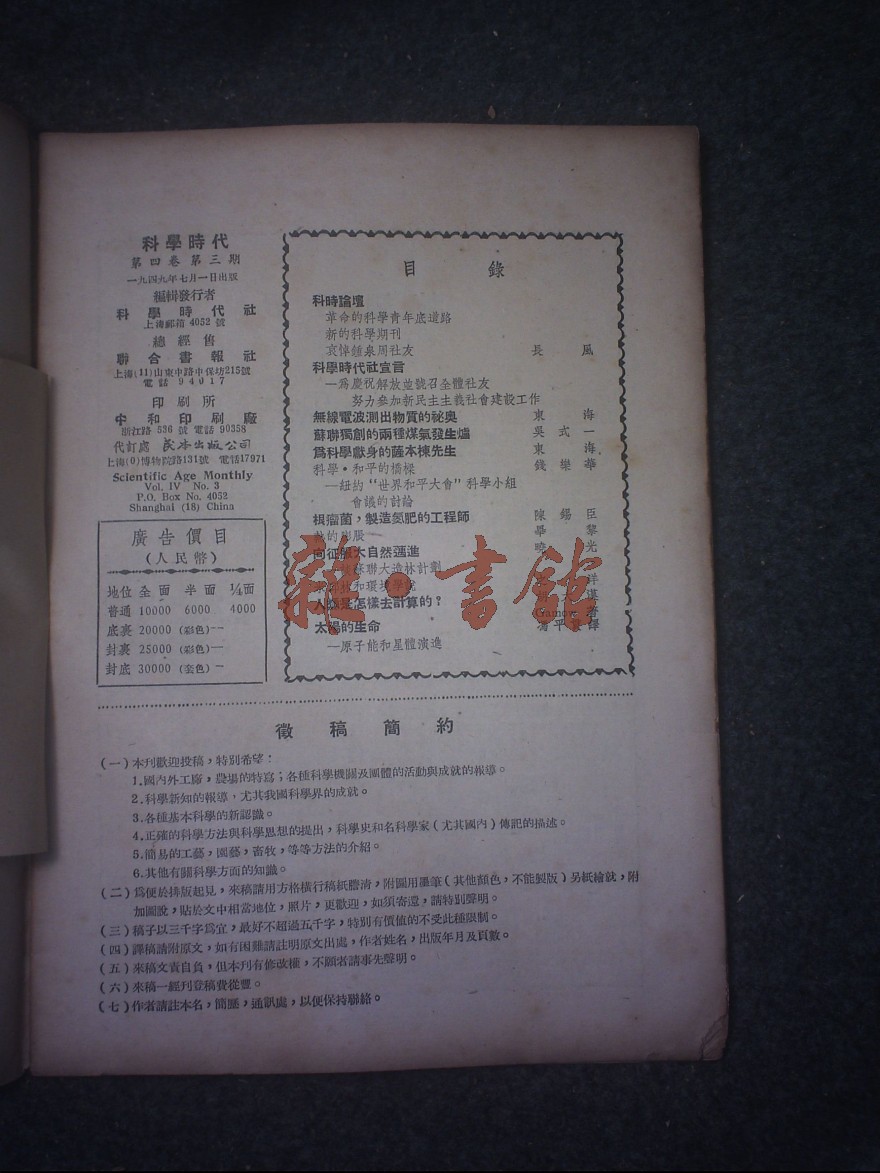 科學時代
第四卷第三期
一九四九年七月一日出版
編輯發行者
科學時代社
上海郵箱 4052 號
總經售
聯合書報社
上海(11)山東中路中保坊215號
電話 94017
印刷所
中和印刷廠
浙江路 536 號 電話 90358
代訂處 民本出版公司
上海(0)博物院路131號 電話17971
Scientific Age Monthly
Vol. IV No. 3
P.O. Box No. 4052
Shanghai (18) China
廣告價目
(人民幣)
地位 全面 半面 ¼面
普通 10000 6000 4000
底裏 20000 (彩色)——
封裏 25000 (彩色)—
封底 30000 (套色)—
目錄
科時論壇
革命的科學青年底道路
新的科學期刊
哀悼鍾泉周社友 長風
科學時代社宣言
—爲慶祝解放並號召全體社友
努力參加新民主主義社會建設工作
無線電波測出物質的祕奥 東海
蘇聯獨創的兩種煤氣發生爐 吳式一
爲科學獻身的薩本棟先生 東海
科學・和平的橋樑 錢樂華
—紐約“世界和平大會”科學小組
會議的討論
根瘤菌，製造氮肥的工程師 陳錫臣
熱的膨脹 畢黎
向征服大自然邁進 曉光
蘇聯大造林計劃
和環境學說 洋
人腦是怎樣去計算的？
太陽的生命 Gamow 著
—原子能和星體演進
雜・書館
徵稿簡約
(一)本刊歡迎投稿，特別希望：
1.國內外工廠，農場的特寫；各種科學機關及團體的活動與成就的報導。
2.科學新知的報導，尤其我國科學界的成就。
3.各種基本科學的新認識。
4.正確的科學方法與科學思想的提出，科學史和名科學家(尤其國內)傳記的描述。
5.簡易的工藝，園藝，畜牧，等等方法的介紹。
6.其他有關科學方面的知識。
(二)爲便於排版起見，來稿請用方格橫行稿紙謄清，附圖用墨筆(其他顏色，不能製版)另紙繪就，附
加圖說，貼於文中相當地位，照片，更歡迎，如須寄還，請特別聲明。
(三)稿子以三千字爲宜，最好不超過五千字，特別有價值的不受此種限制。
(四)譯稿請附原文，如有困難請註明原文出處，作者姓名，出版年月及頁數。
(五)來稿文責自負，但本刊有修改權，不願者請事先聲明。
(六)來稿一經刊登稿費從豐。
(七)作者請註本名，簡歷，通訊處，以便保持聯絡。